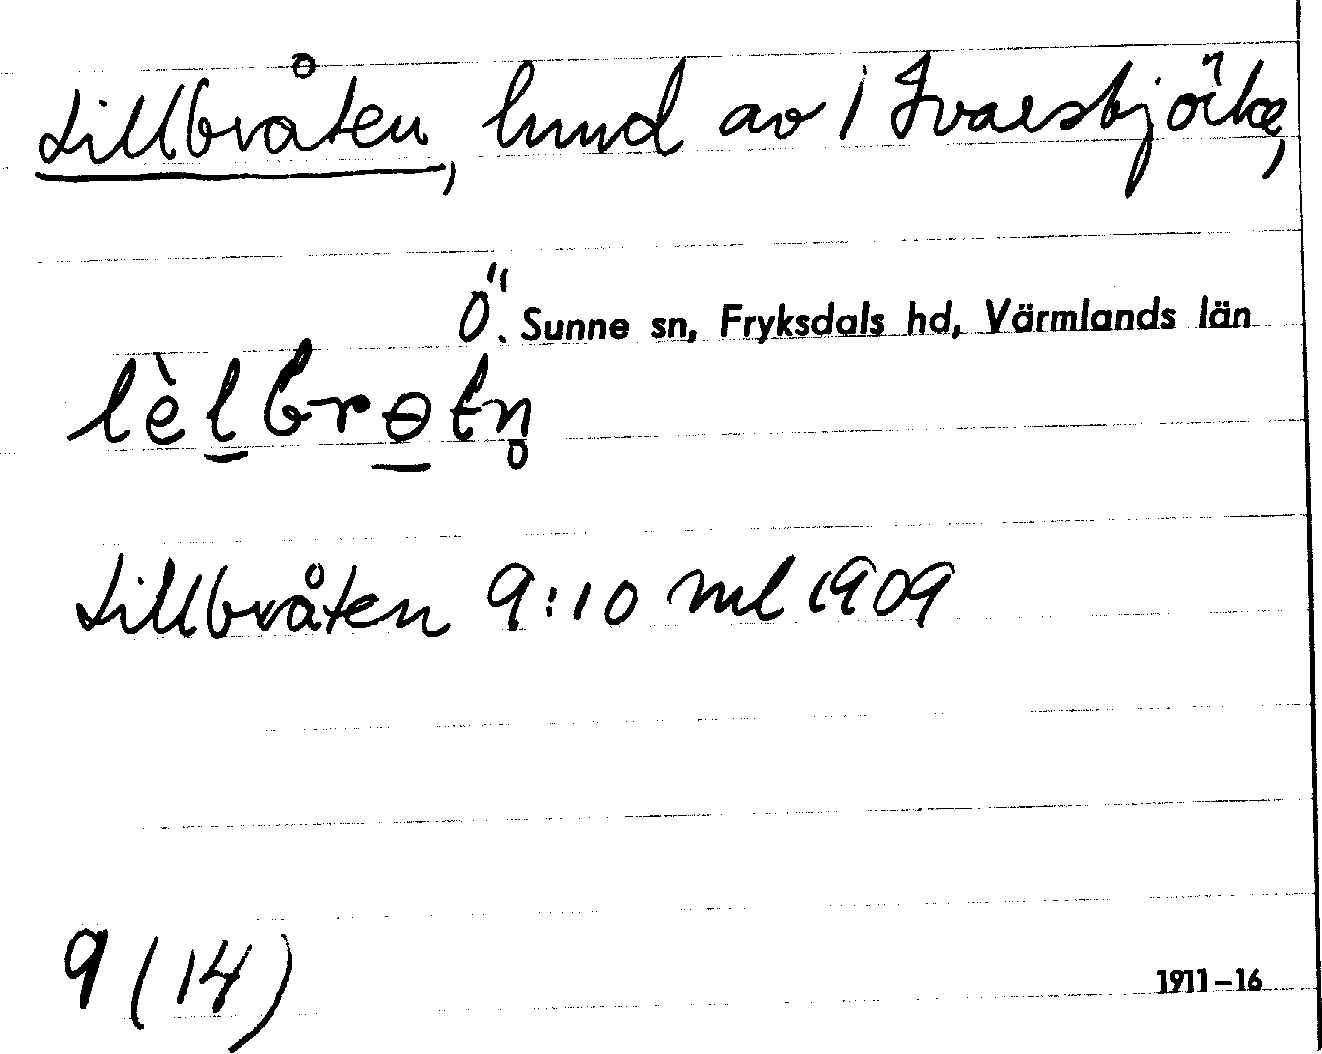 Lillbråten, hmd av 1 Ivarsbjörke,
Ö. Sunne sn, Fryksdals hd, Värmlands län
lèlbrɵtn̥
Lillbråten 9:10 ml 1909
9 (14)
1911-16